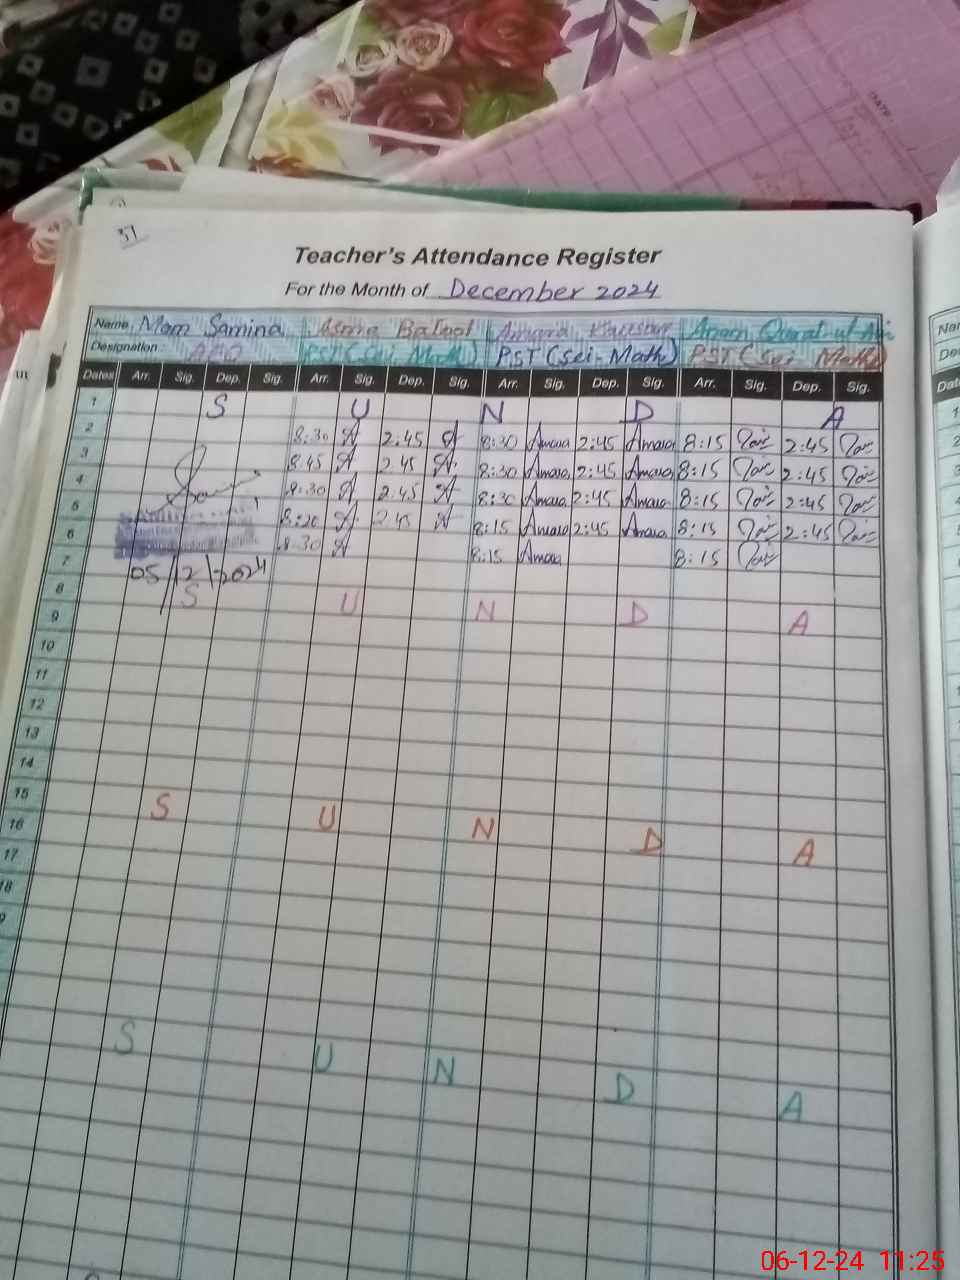 37
Teacher's Attendance Register
For the Month of December 2024
Name: Mam Samina Asma Batool Amara Kausar Anam Qurat-ul-Ain
Designation: AEO PST (Sci-Math) PST (Sci-Math) PST (Sci-Math)
Dates Arr. Sig. Dep. Sig. Arr. Sig. Dep. Sig. Arr. Sig. Dep. Sig. Arr. Sig. Dep. Sig.
1 S U N D A
2 8:30 A 2:45 A 8:30 Amara 2:45 Amara 8:15 2:45
3 8:45 A 2:45 A 8:30 Amara 2:45 Amara 8:15 2:45
4 8:30 A 2:45 A 8:30 Amara 2:45 Amara 8:15 2:45
5 8:20 A 2:45 A 8:15 Amara 2:45 Amara 8:15 2:45
6 8:30 A 8:15 Amara 8:15
7 05/12/2024
8 S U N D A
9
10
11
12
13
14
15 S U N D A
16
17
18
9
S U N D A
DATE
Nar
De
Date
06-12-24 11:25